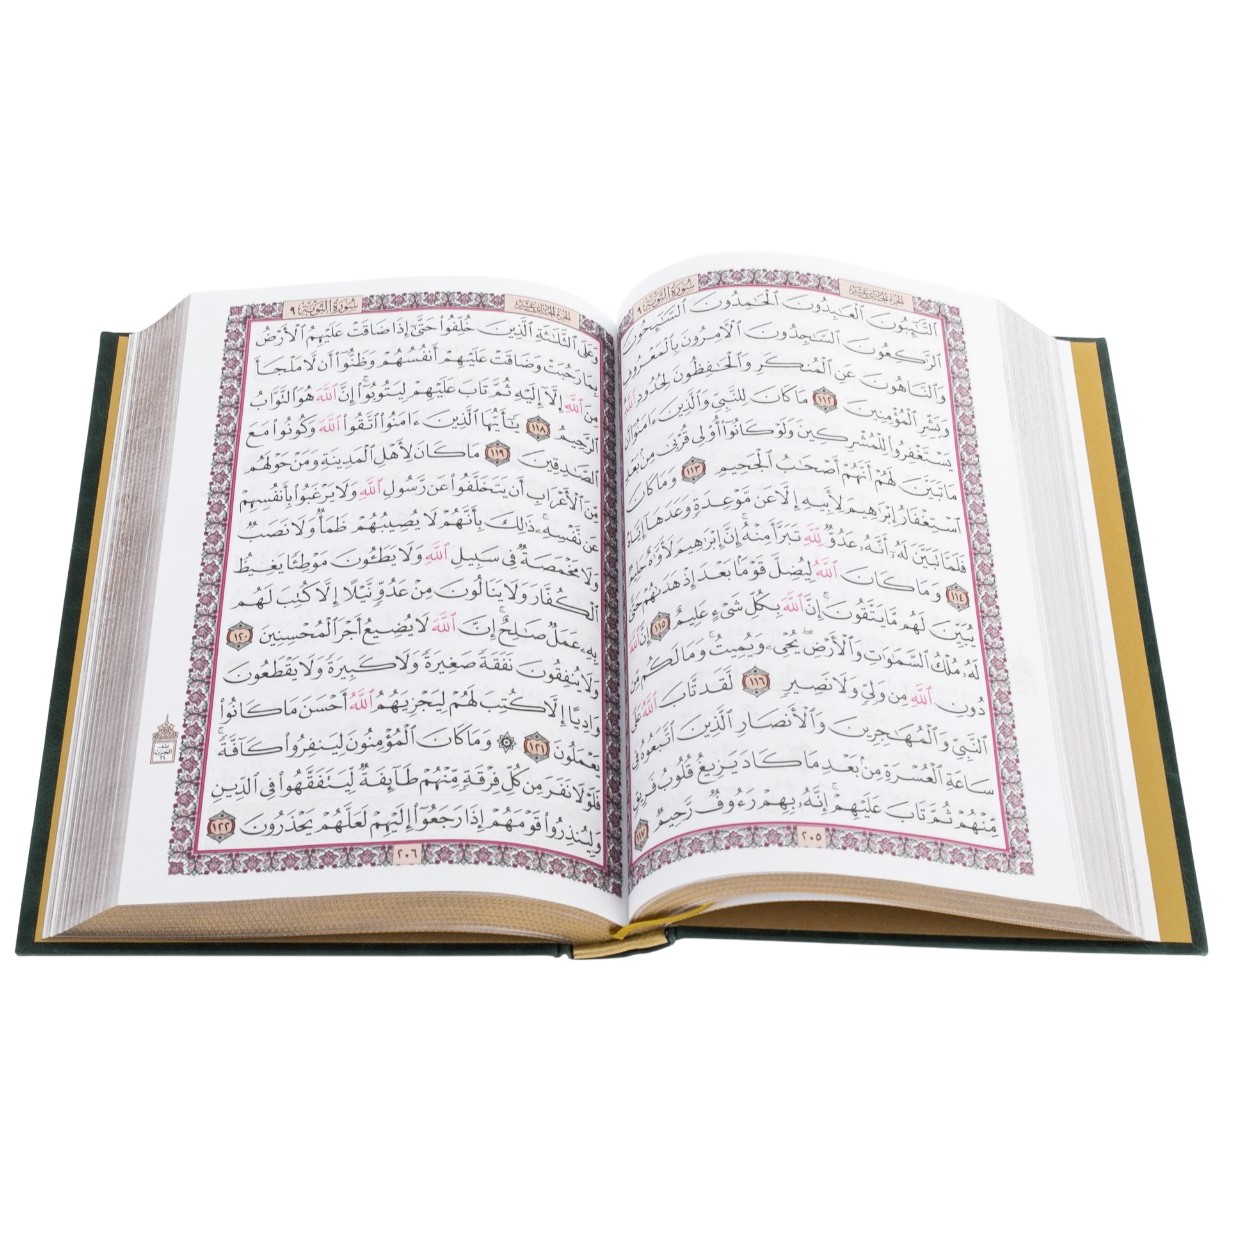 سُورَةُ التَّوْبَةِ ٩
الجُزْءُ الحَادِي عَشَرَ
التَّٰٓئِبُونَ ٱلْعَٰبِدُونَ ٱلْحَٰمِدُونَ ٱلسَّٰٓئِحُونَ
ٱلرَّٰكِعُونَ ٱلسَّٰجِدُونَ ٱلْءَامِرُونَ بِٱلْمَعْرُوفِ
وَٱلنَّاهُونَ عَنِ ٱلْمُنكَرِ وَٱلْحَٰفِظُونَ لِحُدُودِ ٱللَّهِ
وَبَشِّرِ ٱلْمُؤْمِنِينَ ١١٢ مَا كَانَ لِلنَّبِيِّ وَٱلَّذِينَ ءَامَنُوٓا۟ أَن
يَسْتَغْفِرُوا۟ لِلْمُشْرِكِينَ وَلَوْ كَانُوٓا۟ أُو۟لِي قُرْبَىٰ مِنۢ بَعْدِ
مَا تَبَيَّنَ لَهُمْ أَنَّهُمْ أَصْحَٰبُ ٱلْجَحِيمِ ١١٣ وَمَا كَانَ
ٱسْتِغْفَارُ إِبْرَٰهِيمَ لِأَبِيهِ إِلَّا عَن مَّوْعِدَةٍ وَعَدَهَآ إِيَّاهُ
فَلَمَّا تَبَيَّنَ لَهُۥٓ أَنَّهُۥ عَدُوٌّ لِّلَّهِ تَبَرَّأَ مِنْهُ ۚ إِنَّ إِبْرَٰهِيمَ لَأَوَّٰهٌ حَلِيمٌ
١١٤ وَمَا كَانَ ٱللَّهُ لِيُضِلَّ قَوْمًۢا بَعْدَ إِذْ هَدَىٰهُمْ حَتَّىٰ
يُبَيِّنَ لَهُم مَّا يَتَّقُونَ ۚ إِنَّ ٱللَّهَ بِكُلِّ شَيْءٍ عَلِيمٌ ١١٥ إِنَّ ٱللَّهَ
لَهُۥ مُلْكُ ٱلسَّمَٰوَٰتِ وَٱلْأَرْضِ ۖ يُحْيِۦ وَيُمِيتُ ۚ وَمَا لَكُم مِّن
دُونِ ٱللَّهِ مِن وَلِيٍّ وَلَا نَصِيرٍ ١١٦ لَّقَد تَّابَ ٱللَّهُ عَلَى
ٱلنَّبِيِّ وَٱلْمُهَٰجِرِينَ وَٱلْأَنصَارِ ٱلَّذِينَ ٱتَّبَعُوهُ فِي
سَاعَةِ ٱلْعُسْرَةِ مِنۢ بَعْدِ مَا كَادَ يَزِيغُ قُلُوبُ فَرِيقٍ
مِّنْهُمْ ثُمَّ تَابَ عَلَيْهِمْ ۚ إِنَّهُۥ بِهِمْ رَءُوفٌ رَّحِيمٌ ١١٧
٢٠٥
سُورَةُ التَّوْبَةِ ٩
الجُزْءُ الحَادِي عَشَرَ
وَعَلَى ٱلثَّلَٰثَةِ ٱلَّذِينَ خُلِّفُوا۟ حَتَّىٰٓ إِذَا ضَاقَتْ عَلَيْهِمُ ٱلْأَرْضُ
بِمَا رَحُبَتْ وَضَاقَتْ عَلَيْهِمْ أَنفُسُهُمْ وَظَنُّوٓا۟ أَن لَّا مَلْجَأَ
مِنَ ٱللَّهِ إِلَّآ إِلَيْهِ ثُمَّ تَابَ عَلَيْهِمْ لِيَتُوبُوٓا۟ ۚ إِنَّ ٱللَّهَ هُوَ ٱلتَّوَّابُ
ٱلرَّحِيمُ ١١٨ يَٰٓأَيُّهَا ٱلَّذِينَ ءَامَنُوا۟ ٱتَّقُوا۟ ٱللَّهَ وَكُونُوا۟ مَعَ
ٱلصَّٰدِقِينَ ١١٩ مَا كَانَ لِأَهْلِ ٱلْمَدِينَةِ وَمَنْ حَوْلَهُم
مِّنَ ٱلْأَعْرَابِ أَن يَتَخَلَّفُوا۟ عَن رَّسُولِ ٱللَّهِ وَلَا يَرْغَبُوا۟ بِأَنفُسِهِمْ
عَن نَّفْسِهِۦ ۚ ذَٰلِكَ بِأَنَّهُمْ لَا يُصِيبُهُمْ ظَمَأٌ وَلَا نَصَبٌ
وَلَا مَخْمَصَةٌ فِي سَبِيلِ ٱللَّهِ وَلَا يَطَـُٔونَ مَوْطِئًا يَغِيظُ
ٱلْكُفَّارَ وَلَا يَنَالُونَ مِنْ عَدُوٍّ نَّيْلًا إِلَّا كُتِبَ لَهُم
بِهِۦ عَمَلٌ صَٰلِحٌ ۚ إِنَّ ٱللَّهَ لَا يُضِيعُ أَجْرَ ٱلْمُحْسِنِينَ ١٢٠
وَلَا يُنفِقُونَ نَفَقَةً صَغِيرَةً وَلَا كَبِيرَةً وَلَا يَقْطَعُونَ
وَادِيًا إِلَّا كُتِبَ لَهُمْ لِيَجْزِيَهُمُ ٱللَّهُ أَحْسَنَ مَا كَانُوا۟
يَعْمَلُونَ ١٢١ ۞ وَمَا كَانَ ٱلْمُؤْمِنُونَ لِيَنفِرُوا۟ كَآفَّةً ۚ
فَلَوْلَا نَفَرَ مِن كُلِّ فِرْقَةٍ مِّنْهُمْ طَآئِفَةٌ لِّيَتَفَقَّهُوا۟ فِي ٱلدِّينِ
وَلِيُنذِرُوا۟ قَوْمَهُمْ إِذَا رَجَعُوٓا۟ إِلَيْهِمْ لَعَلَّهُمْ يَحْذَرُونَ ١٢٢
٢٠٦